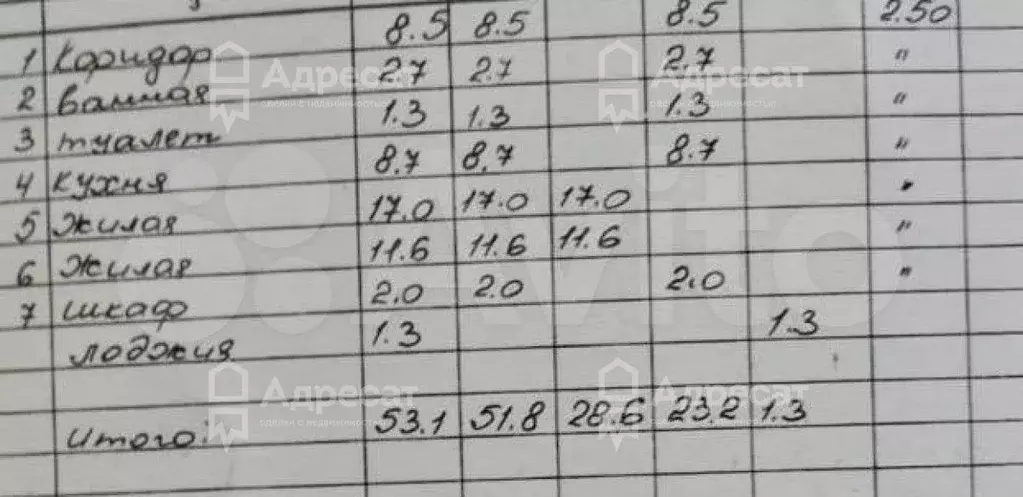 1 Коридор 8.5 8.5 8.5 2.50
2 Ванная 2.7 2.7 2.7 "
3 туалет 1.3 1.3 1.3 "
4 Кухня 8.7 8.7 8.7 "
5 Жилая 17.0 17.0 17.0 "
6 Жилая 11.6 11.6 11.6 "
7 шкаф 2.0 2.0 2.0 "
лоджия 1.3 1.3
итого: 53.1 51.8 28.6 23.2 1.3
Адресат
сделки с недвижимостью
Адресат
сделки с недвижимостью
Адресат
сделки с недвижимостью
Адресат
сделки с недвижимостью
Avito